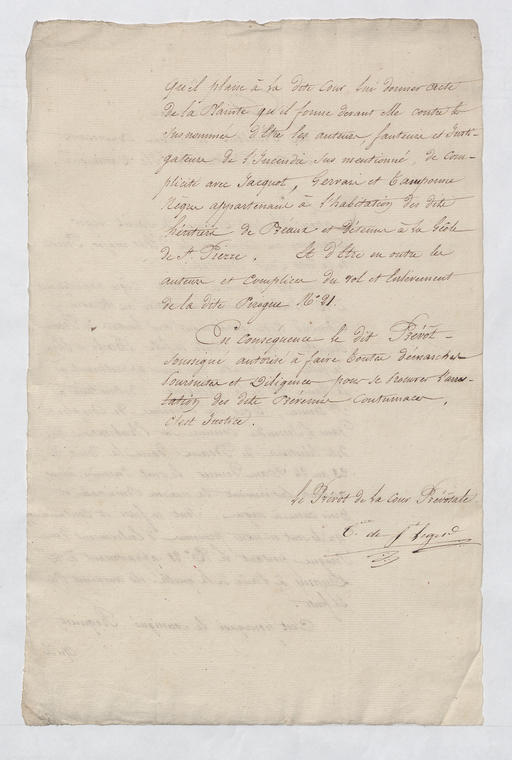 qu'il plaise à la dite Cour lui donner acte
de la Plainte qu'il forme devant elle contre les
susnommés d'être les auteurs, fauteurs et Insti-
gateurs de l'Incendie sus mentionné, de com-
plicité avec Jacquot, Gervais et Tamponne
Nègres appartenans à l'habitation des dits
héritiers de Préaux et détenus à la Geôle
de St. Pierre. Et d'être en outre les
auteurs et complices du vol et Enlèvement
de la dite Pirogue No. 21.
En conséquence le dit Prévôt
soussigné autorisé à faire toutes démarches
Poursuites et Diligences pour se procurer l'arres-
tation des dits Prévenus Contumaces,
c'est Justice.
Le Prévôt de la Cour Prévôtale
de St